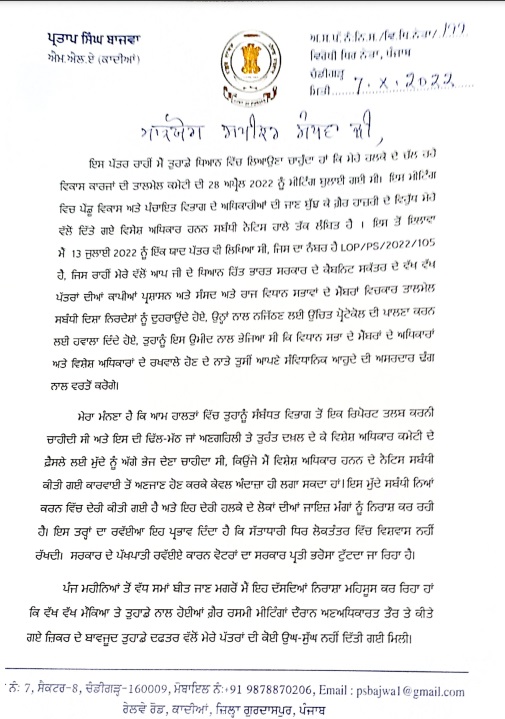 ਪ੍ਰਤਾਪ ਸਿੰਘ ਬਾਜਵਾ
ਐਮ.ਐਲ.ਏ (ਕਾਦੀਆਂ)
ਅ.ਸ.ਪੱ.ਨੰ.ਨਿ.ਸ./ਵਿ.ਧਿ.ਨੇਤਾ/ 199
ਵਿਰੋਧੀ ਧਿਰ ਨੇਤਾ, ਪੰਜਾਬ
ਚੰਡੀਗੜ੍ਹ
ਮਿਤੀ 7.X.2022
ਮਾਣਯੋਗ ਸਪੀਕਰ ਸੰਧਵਾਂ ਜੀ,
ਇਸ ਪੱਤਰ ਰਾਹੀਂ ਮੈਂ ਤੁਹਾਡੇ ਧਿਆਨ ਵਿੱਚ ਲਿਆਉਣਾ ਚਾਹੁੰਦਾ ਹਾਂ ਕਿ ਮੇਰੇ ਹਲਕੇ ਦੇ ਚੱਲ ਰਹੇ
ਵਿਕਾਸ ਕਾਰਜਾਂ ਦੀ ਤਾਲਮੇਲ ਕਮੇਟੀ ਦੀ 28 ਅਪ੍ਰੈਲ 2022 ਨੂੰ ਮੀਟਿੰਗ ਬੁਲਾਈ ਗਈ ਸੀ। ਇਸ ਮੀਟਿੰਗ
ਵਿਚ ਪੇਂਡੂ ਵਿਕਾਸ ਅਤੇ ਪੰਚਾਇਤ ਵਿਭਾਗ ਦੇ ਅਧਿਕਾਰੀਆਂ ਦੀ ਜਾਣ ਬੁੱਝ ਕੇ ਗ਼ੈਰ ਹਾਜ਼ਰੀ ਦੇ ਵਿਰੁੱਧ ਮੇਰੇ
ਵੱਲੋਂ ਦਿੱਤੇ ਗਏ ਵਿਸ਼ੇਸ਼ ਅਧਿਕਾਰ ਹਨਨ ਸਬੰਧੀ ਨੋਟਿਸ ਹਾਲੇ ਤੱਕ ਲੰਬਿਤ ਹੈ । ਇਸ ਤੋਂ ਇਲਾਵਾ
ਮੈਂ 13 ਜੁਲਾਈ 2022 ਨੂੰ ਇੱਕ ਯਾਦ ਪੱਤਰ ਵੀ ਲਿਖਿਆ ਸੀ, ਜਿਸ ਦਾ ਨੰਬਰ ਹੈ LOP/PS/2022/105
ਹੈ, ਜਿਸ ਰਾਹੀਂ ਮੇਰੇ ਵੱਲੋਂ ਆਪ ਜੀ ਦੇ ਧਿਆਨ ਹਿੱਤ ਭਾਰਤ ਸਰਕਾਰ ਦੇ ਕੈਬਨਿਟ ਸਕੱਤਰ ਦੇ ਵੱਖ ਵੱਖ
ਪੱਤਰਾਂ ਦੀਆਂ ਕਾਪੀਆਂ ਪ੍ਰਸ਼ਾਸਨ ਅਤੇ ਸੰਸਦ ਅਤੇ ਰਾਜ ਵਿਧਾਨ ਸਭਾਵਾਂ ਦੇ ਮੈਂਬਰਾਂ ਵਿਚਕਾਰ ਤਾਲਮੇਲ
ਸਬੰਧੀ ਦਿਸ਼ਾ ਨਿਰਦੇਸ਼ਾਂ ਨੂੰ ਦੁਹਰਾਉਂਦੇ ਹੋਏ, ਉਨ੍ਹਾਂ ਨਾਲ ਨਜਿੱਠਣ ਲਈ ਉਚਿਤ ਪ੍ਰੋਟੋਕੋਲ ਦੀ ਪਾਲਣਾ ਕਰਨ
ਲਈ ਹਵਾਲਾ ਦਿੰਦੇ ਹੋਏ, ਤੁਹਾਨੂੰ ਇਸ ਉਮੀਦ ਨਾਲ ਭੇਜਿਆ ਸੀ ਕਿ ਵਿਧਾਨ ਸਭਾ ਦੇ ਮੈਂਬਰਾਂ ਦੇ ਅਧਿਕਾਰਾਂ
ਅਤੇ ਵਿਸ਼ੇਸ਼ ਅਧਿਕਾਰਾਂ ਦੇ ਰਖਵਾਲੇ ਹੋਣ ਦੇ ਨਾਤੇ ਤੁਸੀਂ ਆਪਣੇ ਸੰਵਿਧਾਨਿਕ ਆਹੁਦੇ ਦੀ ਅਸਰਦਾਰ ਢੰਗ
ਨਾਲ ਵਰਤੋਂ ਕਰੋਗੇ।
ਮੇਰਾ ਮੰਨਣਾ ਹੈ ਕਿ ਆਮ ਹਾਲਤਾਂ ਵਿੱਚ ਤੁਹਾਨੂੰ ਸੰਬੰਧਤ ਵਿਭਾਗ ਤੋਂ ਇਕ ਰਿਪੋਰਟ ਤਲਬ ਕਰਨੀ
ਚਾਹੀਦੀ ਸੀ ਅਤੇ ਇਸ ਦੀ ਢਿੱਲ-ਮੱਠ ਜਾਂ ਅਣਗਹਿਲੀ ਤੇ ਤੁਰੰਤ ਦਖ਼ਲ ਦੇ ਕੇ ਵਿਸ਼ੇਸ਼ ਅਧਿਕਾਰ ਕਮੇਟੀ ਦੇ
ਫ਼ੈਸਲੇ ਲਈ ਮੁੱਦੇ ਨੂੰ ਅੱਗੇ ਭੇਜ ਦੇਣਾ ਚਾਹੀਦਾ ਸੀ, ਕਿਉਂਜੋ ਮੈਂ ਵਿਸ਼ੇਸ਼ ਅਧਿਕਾਰ ਹਨਨ ਦੇ ਨੋਟਿਸ ਸਬੰਧੀ
ਕੀਤੀ ਗਈ ਕਾਰਵਾਈ ਤੋਂ ਅਣਜਾਣ ਹੋਣ ਕਰਕੇ ਕੇਵਲ ਅੰਦਾਜ਼ਾ ਹੀ ਲਗਾ ਸਕਦਾ ਹਾਂ। ਇਸ ਮੁੱਦੇ ਸਬੰਧੀ ਨਿਆਂ
ਕਰਨ ਵਿੱਚ ਦੇਰੀ ਕੀਤੀ ਗਈ ਹੈ ਅਤੇ ਇਹ ਦੇਰੀ ਹਲਕੇ ਦੇ ਲੋਕਾਂ ਦੀਆਂ ਜਾਇਜ਼ ਮੰਗਾਂ ਨੂੰ ਨਿਰਾਸ਼ ਕਰ ਰਹੀ
ਹੈ। ਇਸ ਤਰ੍ਹਾਂ ਦਾ ਰਵੱਈਆ ਇਹ ਪ੍ਰਭਾਵ ਦਿੰਦਾ ਹੈ ਕਿ ਸੱਤਾਧਾਰੀ ਧਿਰ ਲੋਕਤੰਤਰ ਵਿੱਚ ਵਿਸ਼ਵਾਸ ਨਹੀਂ
ਰੱਖਦੀ। ਸਰਕਾਰ ਦੇ ਪੱਖਪਾਤੀ ਰਵੱਈਏ ਕਾਰਨ ਵੋਟਰਾਂ ਦਾ ਸਰਕਾਰ ਪ੍ਰਤੀ ਭਰੋਸਾ ਟੁੱਟਦਾ ਜਾ ਰਿਹਾ ਹੈ।
ਪੰਜ ਮਹੀਨਿਆਂ ਤੋਂ ਵੱਧ ਸਮਾਂ ਬੀਤ ਜਾਣ ਮਗਰੋਂ ਮੈਂ ਇਹ ਦੱਸਦਿਆਂ ਨਿਰਾਸ਼ਾ ਮਹਿਸੂਸ ਕਰ ਰਿਹਾ ਹਾਂ
ਕਿ ਵੱਖ ਵੱਖ ਮੌਕਿਆ ਤੇ ਤੁਹਾਡੇ ਨਾਲ ਹੋਈਆਂ ਗ਼ੈਰ ਰਸਮੀ ਮੀਟਿੰਗਾਂ ਦੌਰਾਨ ਅਣਅਧਿਕਾਰਤ ਤੌਰ ਤੇ ਕੀਤੇ
ਗਏ ਜ਼ਿਕਰ ਦੇ ਬਾਵਜੂਦ ਤੁਹਾਡੇ ਦਫਤਰ ਵੱਲੋਂ ਮੇਰੇ ਪੱਤਰਾਂ ਦੀ ਕੋਈ ਉਘ-ਸੁੱਘ ਨਹੀਂ ਦਿੱਤੀ ਗਈ ਮਿਲੀ।
ਨੰ: 7, ਸੈਕਟਰ-8, ਚੰਡੀਗੜ੍ਹ-160009, ਮੋਬਾਇਲ ਨੰ:+91 9878870206, Email : psbajwa1@gmail.com
ਰੇਲਵੇ ਰੋਡ, ਕਾਦੀਆਂ, ਜ਼ਿਲ੍ਹਾ ਗੁਰਦਾਸਪੁਰ, ਪੰਜਾਬ